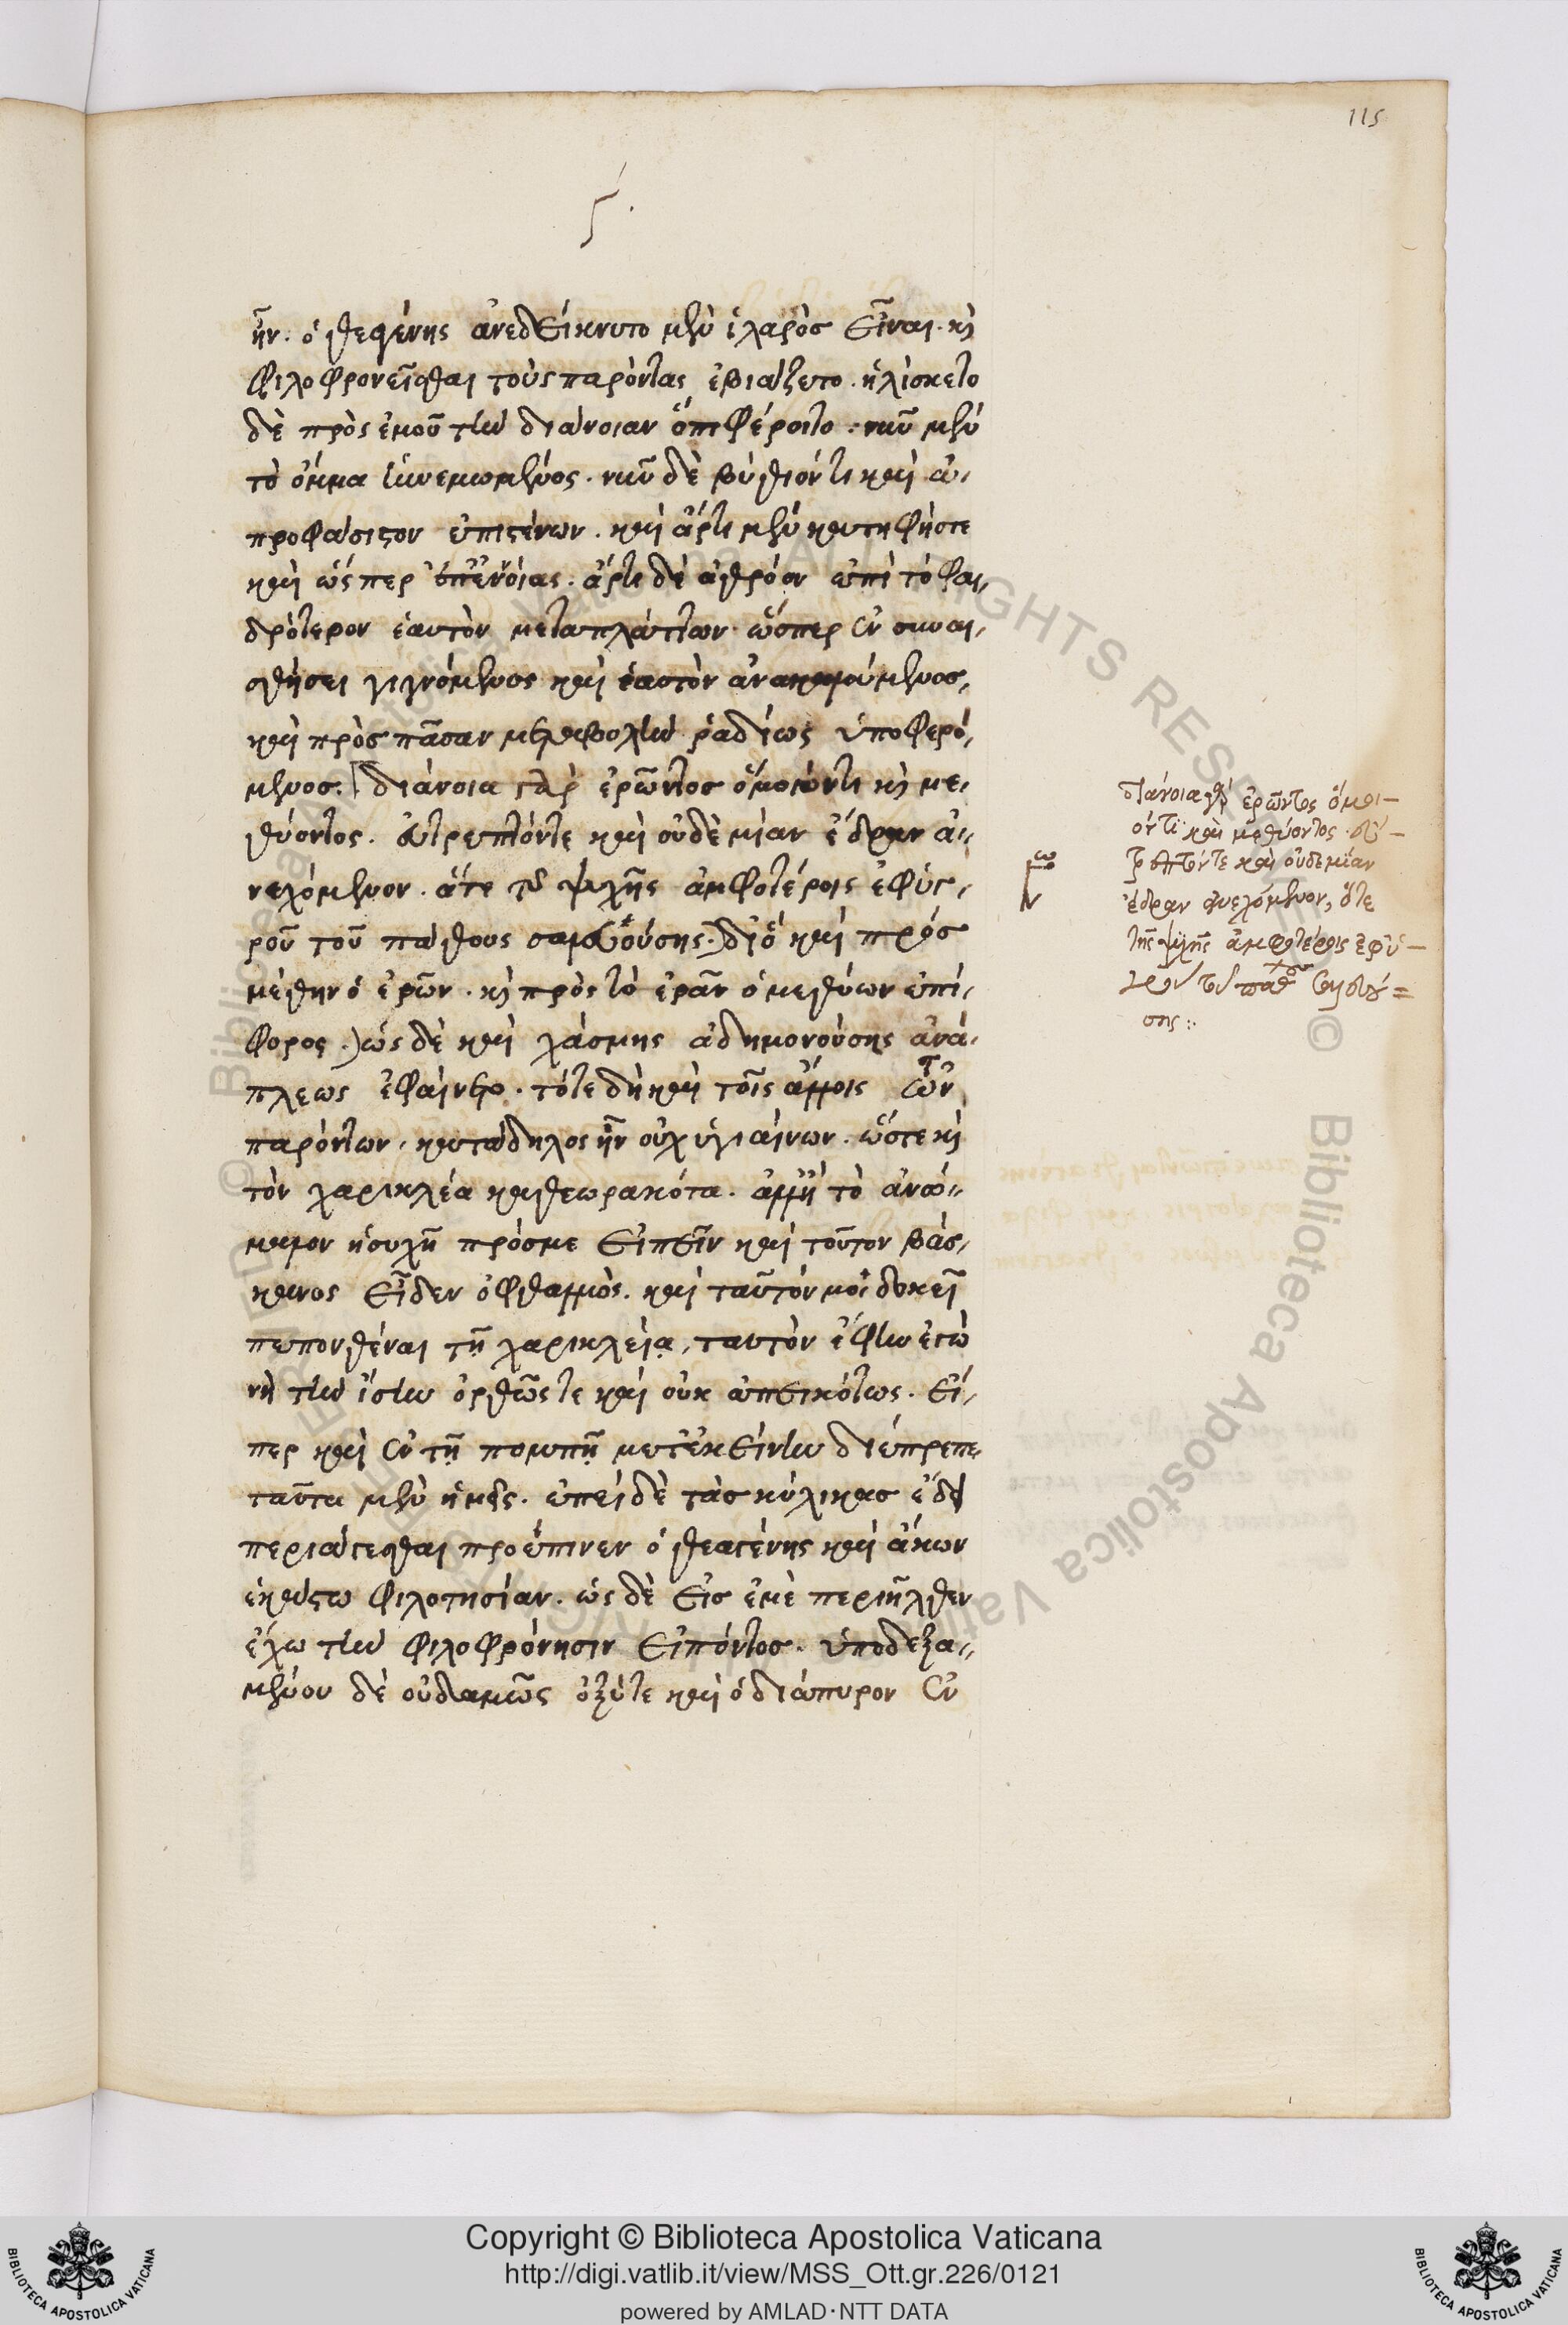 115
ϛ΄.
ἦν. ὁ θεαγένης ἀνεδείκνυτο μὲν ἱλαρὸσ εἶναι. κὶ
φιλοφρονεῖσθαι τοὺς παρόντας ἐβιάζετο. ἡλίσκετο
δὲ πρὸς ἐμοῦ τὴν διάνοιαν ὅπη φέροιτο. νῦν μὲν
τὸ ὄμμα ἠνεμωμένος. νῦν δὲ βύθιόν τι καὶ ἀ-
προφάσιστον ἐπιστένων. καὶ ἄρτι μὲν κατηφήστε
καὶ ὥσπερ ἐπ' ἐννοίας. ἄρτι δὲ ἀθρόον ἐπὶ τὸ φαι-
δρότερον ἑαυτὸν μεταπλάττων. ὥσπερ ἐν συναι-
σθήσει γιγνόμενος καὶ ἑαυτὸν ἀνακαλούμενοσ,
καὶ πρὸσ πᾶσαν μεταβολὴν ῥαδίως ὑποφερό-
μενοσ. διάνοια γὰρ ἐρῶντοσ ὅμοιόν τι κὶ με-
θύοντος. εὔτρεπτόν τε καὶ οὐδὲ μίαν ἕδραν ἀ-
νεχόμενον. ἅτε τῆς ψυχῆς ἀμφοτέροις ἐφ' ὑγ-
ροῦ τοῦ πάθους σαλευούσης. διὸ καὶ πρὸσ
μέθην ὁ ἐρῶν. κὶ πρὸς τὸ ἐρᾶν ὁ μεθύων ἐπί-
φορος. ὡς δὲ καὶ χάσμης ἀδημονούσης ἀνά-
πλεως ἐφαίνετο. τότε δὴ καὶ τοῖς ἄλλοις τῶν
παρόντων, κατάδηλος ἦν οὐχ ὑγιαίνων. ὥστε κὶ
τὸν χαρικλέα καθεωρακότα. ἀλλὴ τὸ ἀνώ-
μαλον ἡσυχῆ πρόσμε εἰπεῖν καὶ τοῦτον βάσ-
κανος εἶδεν ὀφθαλμὸς. καὶ ταυτόν μοι δοκεῖ
πεπονθέναι τῇ χαρικλείᾳ, ταυτὸν ἔφην ἐγὼ
νὴ τὴν ἴσιν ὀρθῶς τε καὶ οὐκ ἀπεικότως. εἴ-
περ καὶ ἐν τῇ πομπῇ μετ' ἐκείνην διέπρεπε
ταῦτα μὲν ἡμεῖς. ἐπεὶ δὲ τὰσ κύλικασ ἔδει
περιάγεσθαι προέπινεν ὁ θεαγένης καὶ ἄκων
ἑκάστω φιλοτησίαν. ὡς δὲ εἰσ ἐμὲ περιῆλθεν
ἔχω τὴν φιλοφρόνησιν εἰπόντοσ. ὑποδεξα-
μένου δὲ οὐδαμῶς ὀξύτε καὶ ὁ διάπυρον ἐν
διάνοια γὰρ ἐρῶντος ὅμοι-
όν τι καὶ μεθύοντος. εὔ-
τρεπτόν τε καὶ οὐδεμίαν
ἕδραν ἀνεχόμενον, ἅτε
τῆς ψυχῆς ἀμφοτέροις ἐφ' ὑ-
γροῦ τοῦ πάθους σαλευού-
σης:
Copyright © Biblioteca Apostolica Vaticana
http://digi.vatlib.it/view/MSS_Ott.gr.226/0121
powered by AMLAD·NTT DATA